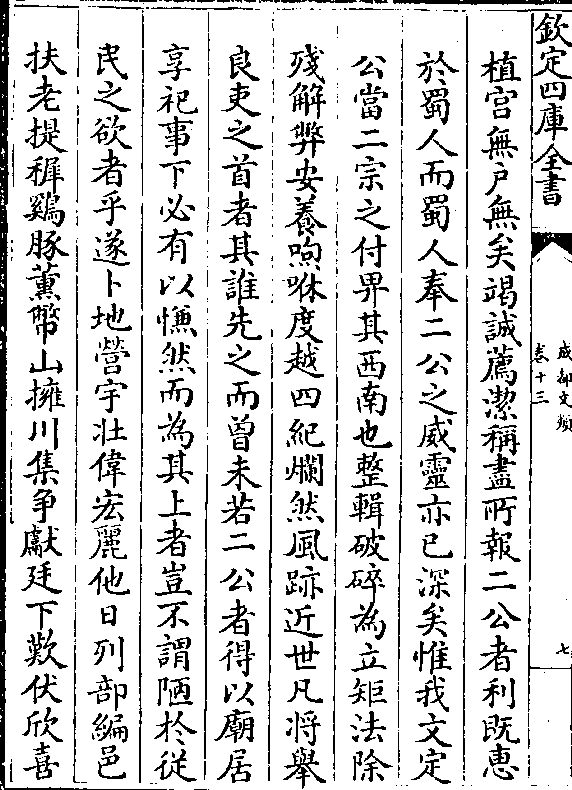 欽定四庫全書
成都文類
卷十三
七
植宫無戸無矣竭誠薦潔稱盡所報二公者利既恵
於蜀人而蜀人奉二公之威靈亦已深矣惟我文定
公當二宗之付畀其西南也整輯破碎為立矩法除
殘解弊安養喣咻度越四紀爛然風跡近世凡将舉
良吏之首者其誰先之而曽未若二公者得以廟居
享祀事下必有以慊然而為其上者豈不謂陋於從
民之欲者乎遂卜地營宇壮偉宏麗他日列部編邑
扶老提穉鷄豚薫幣山擁川集争獻廷下歎伏欣喜